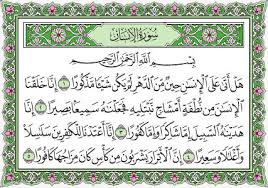 سورة الإنسان
بسم الله الرحمن الرحيم
هل أتى على الإنسن حين من الدهر لم يكن شيئا مذكورا ١ إنا خلقنا
الإنسن من نطفة أمشاج نبتليه فجعلنه سميعا بصيرا ٢ إنا
هدينه السبيل إما شاكرا وإما كفورا ٣ إنا أعتدنا للكفرين سلسلا
وأغللا وسعيرا ٤ إن الأبرار يشربون من كأس كان مزاجها كافورا ٥